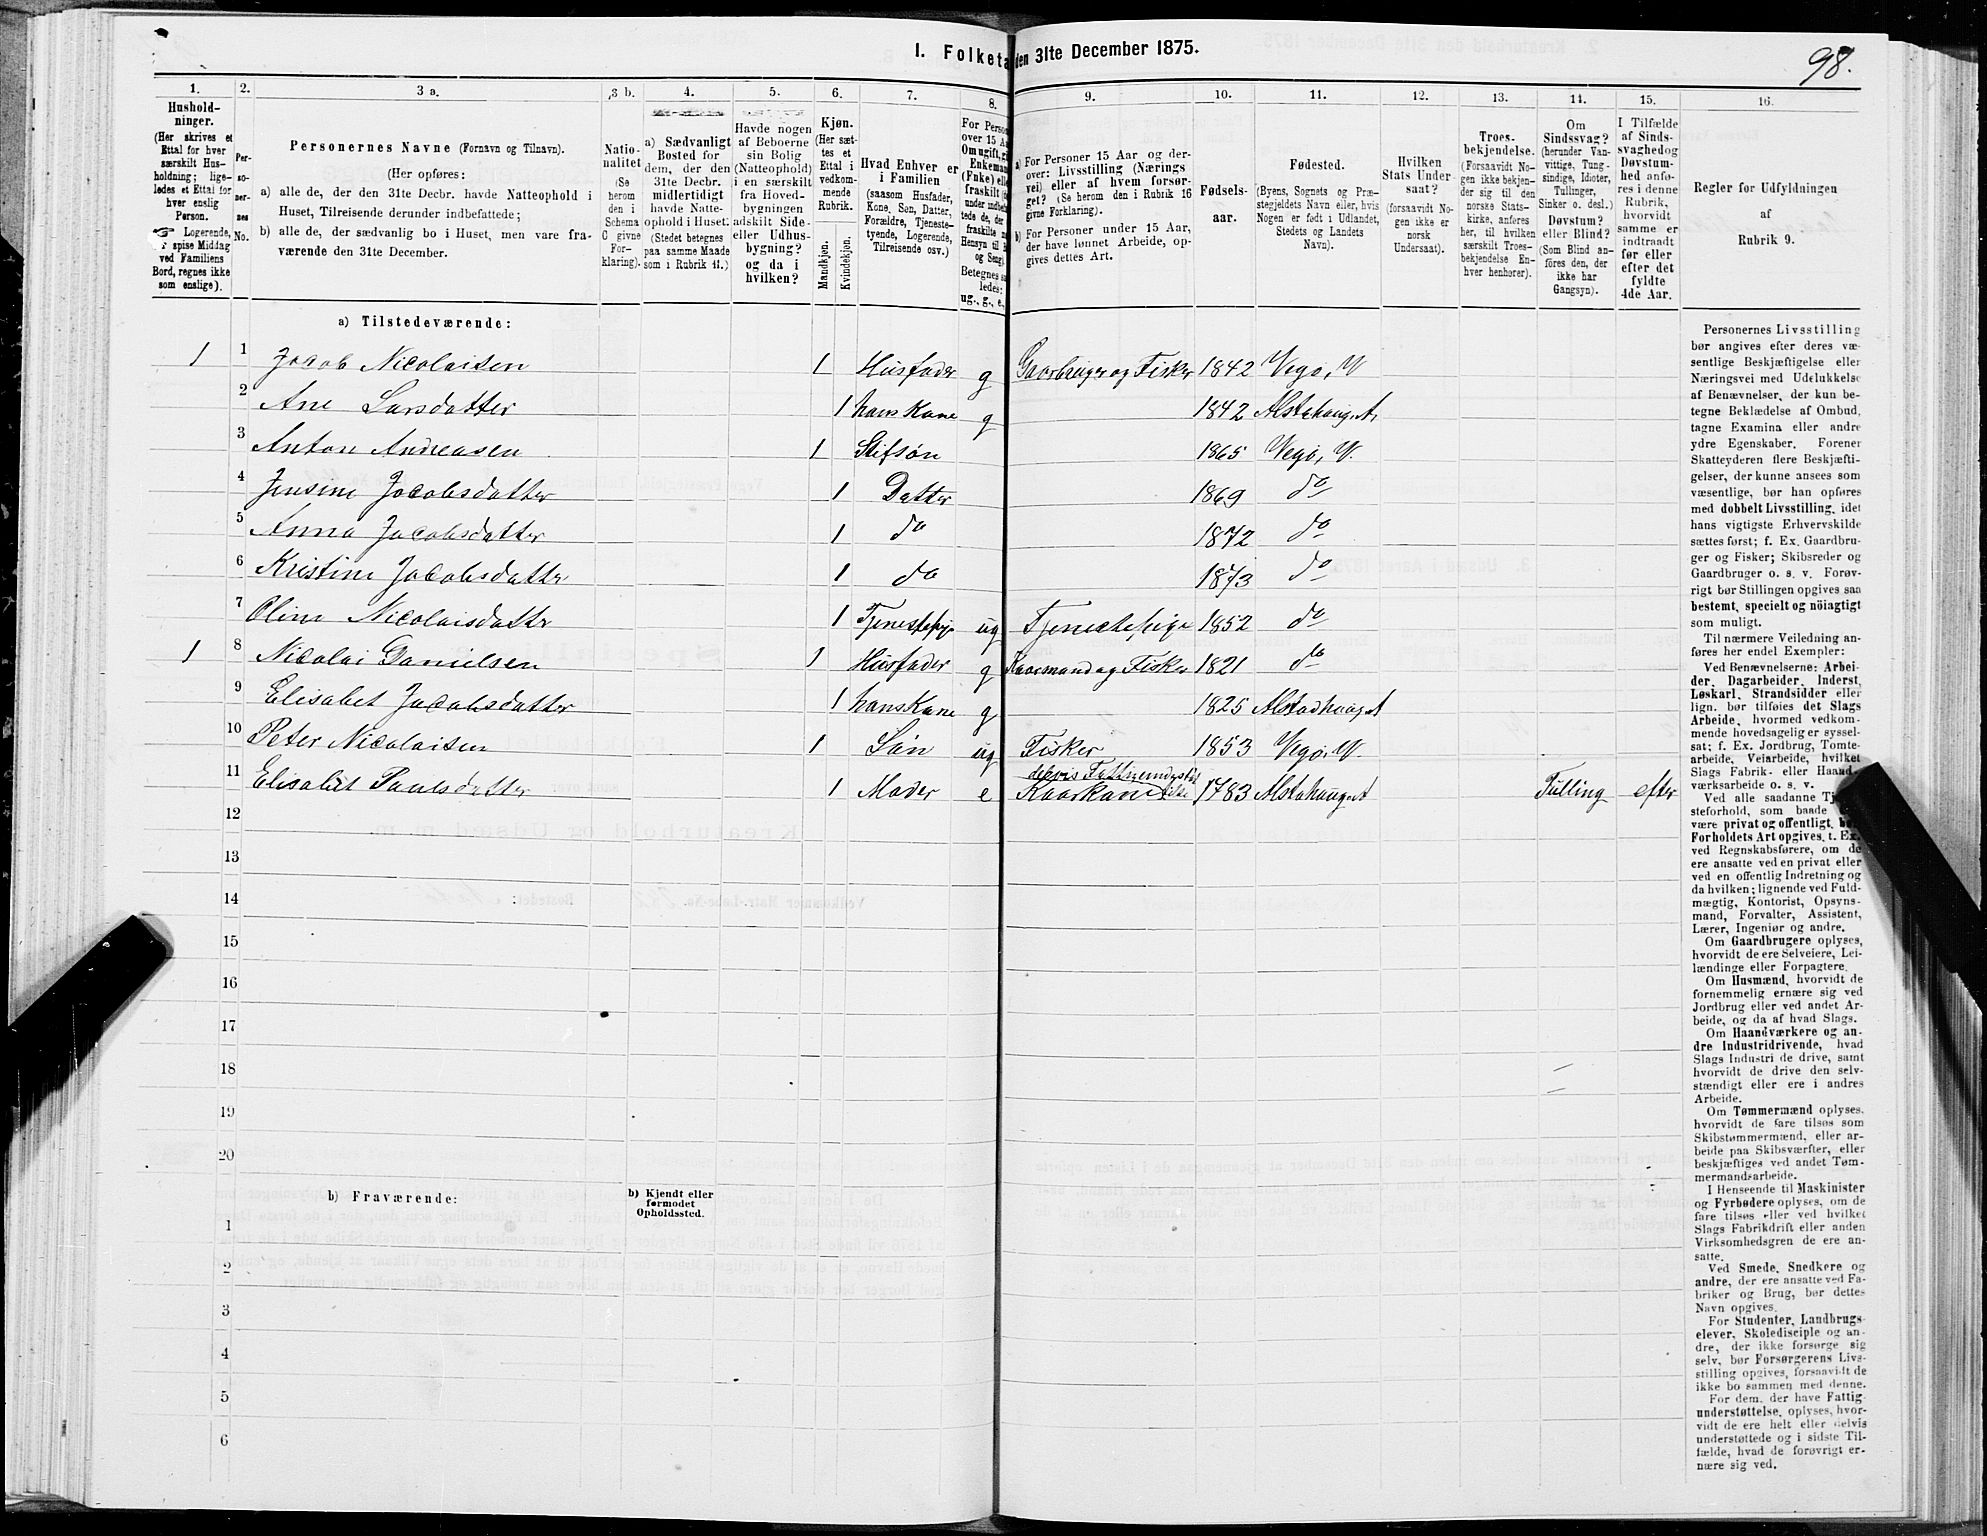 I. Folketa
den 31te December 1875.
98.
1.
2.
3 a.
3 b.
4.
5.
6.
7.
8.
9.
10.
11.
12.
13.
14.
15.
16.
Hushold-
ninger.
(Her skrives et
Ettal for hver
særskilt Hus-
holdning; lige-
ledes et Ettal for
hver enslig
Person.
☞ Logerende,
spise Middag
ved Familiens
Bord, regnes ikke
som enslige).
Per-
so-
ner-
nes
No.
Personernes Navne (Fornavn og Tilnavn).
(Her opføres:
a) alle de, der den 31te Decbr. havde Natteophold i
Huset, Tilreisende derunder indbefattede;
b) alle de, der sædvanlig bo i Huset, men vare fra-
værende den 31te December.
Natio-
nalitet
(Se
herom
den i
Schema
C givne
For-
klaring).
a) Sædvanligt
Bosted for
dem, der den
31te Decbr.
midlertidigt
havde Natte-
ophold i Huset.
(Stedet betegnes
paa samme Maade
som i Rubrik 11.)
Havde nogen
af Beboerne
sin Bolig
(Natteophold)
i en særskilt
fra Hoved-
bygningen
adskilt Side-
eller Udhus-
bygning?
og da i
hvilken?
Kjøn.
(Her sæt-
tes et
Ettal i
vedkom-
mende
Rubrik.
Mandkjøn.
Kvindekjøn.
Hvad Enhver er
i Familien
(saasom Husfader,
Kone, Søn, Datter,
Forældre, Tjeneste-
tyende, Logerende,
Tilreisende osv.)
For Person
over 15 Aa
Om ugift, gi
Enkeman
(Enke) elle
fraskilt (
under indbef
tede de, de
fraskilte m
Hensyn til B
og Seng).
Betegnes sa
ledes:
ug., g., e.,
a) For Personer 15 Aar og der-
over: Livsstilling (Nærings
vei) eller af hvem forsør-
get? (Se herom den i Rubrik 16
givne Forklaring).
b) For Personer under 15 Aar,
der have lønnet Arbeide, op-
gives dettes Art.
Fødsels-
aar.
Fødested.
(Byens, Sognets og Præ-
stegjeldets Navn eller, hvis
Nogen er født i Udlandet,
Stedets og Landets
Navn).
Hvilken
Stats Under
saat?
(forsaavidt No-
gen ikke er
norsk
Undersaat).
Troes-
bekjendelse.
(Forsaavidt No-
gen ikke bekjen-
der sig til den
norske Stats-
kirke, anføres
her, til hvilken
særskilt Troes-
bekjendelse En-
hver henhører).
Om
Sindssvag?
(herunder Van-
vittige, Tung-
sindige, Idioter,
Tullinger,
Sinker o. desl.)
Døvstum?
eller Blind?
(Som Blind an-
føres den, der
ikke har
Gangsyn).
I Tilfælde
af Sinds-
svaghed og
Døvstum-
hed anfø-
res i denne
Rubrik,
hvorvidt
samme er
indtraadt
før eller
efter det
fyldte
4de Aar.
Regler for Udfyldningen
af
Rubrik 9.
a) Tilstedeværende:
1 1 Jacob Nicolaisen 1 Husfader g Gaarbruger og Fisker 1842 Vegø, V
2 Ane Larsdatter 1 hans Kone g 1842 Alstahaug. A.
3 Anton Andreasen 1 Stifsøn 1865 Vegø, V.
4 Jensine Jacobsdatter 1 Datter 1869 do
5 Anna Jacobsdatter 1 do 1872 do
6 Kristine Jacobsdatter 1 do 1873 do
7 Oline Nicolaisdatter 1 Tjenestepige ug Tjenestepige 1852 do
1 8 Nicolai Danielsen 1 Husfader g Kaarmand og Fisker 1821 do
9 Elisabet Jacobsdatter 1 hans Kone g 1825 Alstadhaug. A
10 Peter Nicolaisen 1 Søn ug Fisker 1853 Vegø, V.
11 Elisabet Paulsdatter 1 Moder e Kaarkone 1783 Alstahaug. A Tulling efter
12
13
14
15
16
17
18
19
20
b) Fraværende:
b) Kjendt eller
formodet
Opholdssted.
1
2
3
4
5
6
Personernes Livsstilling
bør angives efter deres væ-
sentlige Beskjæftigelse eller
Næringsvei med Udelukkelse
af Benævnelser, der kun be-
tegne Beklædelse af Ombud,
tagne Examina eller andre
ydre Egenskaber. Forener
Skatteyderen flere Beskjæfti-
gelser, der kunne ansees som
væsentlige, bør han opføres
med dobbelt Livsstilling, idet
hans vigtigste Erhvervskilde
sættes først; f. Ex. Gaardbru-
ger og Fisker; Skibsreder og
Gaardbruger o. s. v. Forøv-
rigt bør Stillingen opgives saa
bestemt, specielt og nöiagtigt
som muligt.
Til nærmere Veiledning an-
føres her endel Exempler:
Ved Benævnelserne: Arbei-
der, Dagarbeider, Inderst,
Løskarl, Strandsidder eller
lign. bør tilføies det Slags
Arbeide, hvormed vedkom-
mende hovedsagelig er syssel-
sat; f. Ex. Jordbrug, Tomte-
arbeide, Veiarbeide, hvilket
Slags Fabrik- eller Haand-
værksarbeide o. s. v.
Ved alle saadanne Tj
steforhold, som baade
være privat og offentligt,
Forholdets Art opgives. t. Ex.
ved Regnskabsførere, om de
ere ansatte ved en privat eller
ved en offentlig Indretning og
da hvilken; lignende ved Fuld-
mægtig, Kontorist, Opsyns-
mand, Forvalter, Assistent,
Lærer, Ingeniør og andre.
Om Gaardbrugere oplyses,
hvorvidt de ere Selveiere, Lei-
lændinge eller Forpagtere.
Om Husmænd, hvorvidt de
fornemmelig ernære sig ved
Jordbrug eller ved andet Ar-
beide, og da af hvad Slags.
Om Haandværkere og an-
dre Industridrivende, hvad
Slags Industri de drive, samt
hvorvidt de drive den selv-
stændigt eller ere i andres
Arbeide.
Om Tømmermænd oplyses,
hvorvidt de fare tilsøs som
Skibstømmermænd, eller ar-
beide paa Skibsværfter, eller
beskjæftiges ved andet Tøm-
mermandsarbeide.
I Henseende til Maskinister
og Fyrbødere oplyses, om de
fare tilsøs eller ved hvilket
Slags Fabrikdrift eller anden
Virksomhedsgren de ere an-
satte.
Ved Smede, Snedkere og
andre, der ere ansatte ved Fa-
briker og Brug, bør dettes
Navn opgives.
For Studenter, Landbrugs-
elever, Skoledisciple og an-
dre, der ikke forsørge sig
selv, bør Forsørgerens Livs-
stilling opgives, forsaavidt de
ikke bo sammen med denne.
For dem, der have Fattig-
understøttelse, oplyses, hvor-
vidt de ere helt eller delvis
understøttede og i sidste Til-
fælde, hvad de forøvrigt er-
nære sig ved.